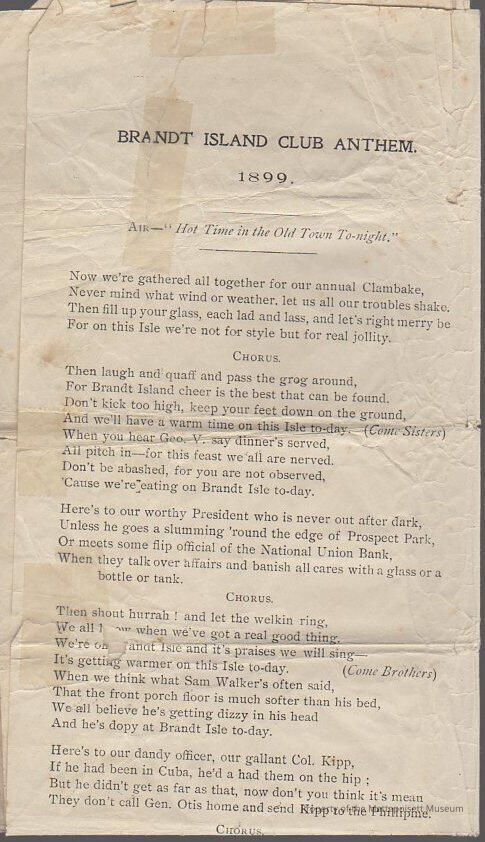 BRANDT ISLAND CLUB ANTHEM.
1899.
AIR—"Hot Time in the Old Town To-night."
Now we're gathered all together for our annual Clambake,
Never mind what wind or weather, let us all our troubles shake.
Then fill up your glass, each lad and lass, and let's right merry be
For on this Isle we're not for style but for real jollity.
CHORUS.
Then laugh and quaff and pass the grog around,
For Brandt Island cheer is the best that can be found.
Don't kick too high, keep your feet down on the ground,
And we'll have a warm time on this Isle to-day. (Come Sisters)
When you hear Geo. V. say dinner's served,
All pitch in—for this feast we all are nerved.
Don't be abashed, for you are not observed,
'Cause we're eating on Brandt Isle to-day.
Here's to our worthy President who is never out after dark,
Unless he goes a slumming 'round the edge of Prospect Park,
Or meets some flip official of the National Union Bank,
When they talk over affairs and banish all cares with a glass or a
bottle or tank.
CHORUS.
Then shout hurrah ! and let the welkin ring,
We all when we've got a real good thing.
We're on Isle and it's praises we will sing—
It's getting warmer on this Isle to-day. (Come Brothers)
When we think what Sam Walker's often said,
That the front porch floor is much softer than his bed,
We all believe he's getting dizzy in his head
And he's dopy at Brandt Isle to-day.
Here's to our dandy officer, our gallant Col. Kipp,
If he had been in Cuba, he'd a had them on the hip ;
But he didn't get as far as that, now don't you think it's mean
They don't call Gen. Otis home and send Kipp to the Philippine.
Property of the Mattapoisett Museum
CHORUS.